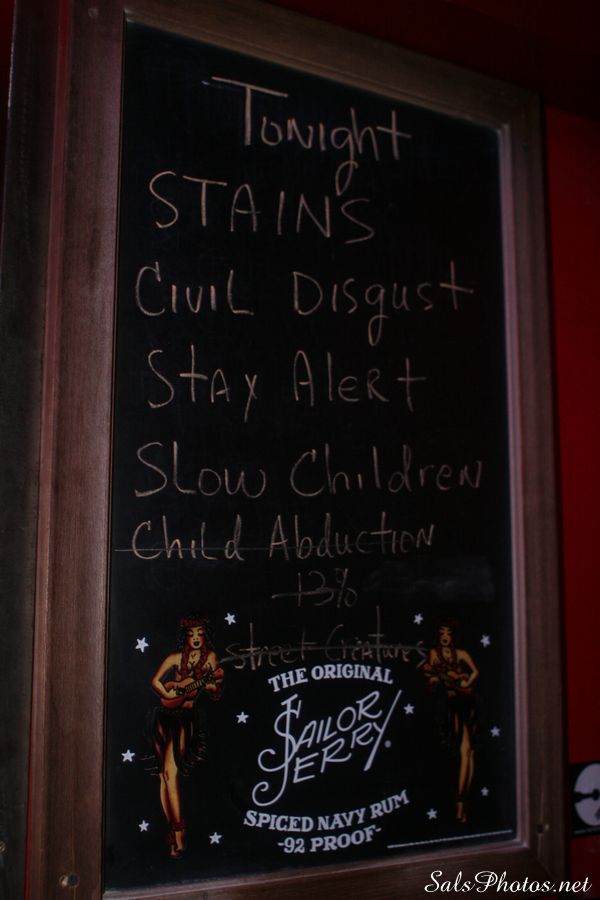 Tonight
STAINS
Civil Disgust
Stay Alert
Slow Children
Child Abduction
13%
Street Creatures
THE ORIGINAL
SAILOR
JERRY®
SPICED NAVY RUM
-92 PROOF-
SalsPhotos.net